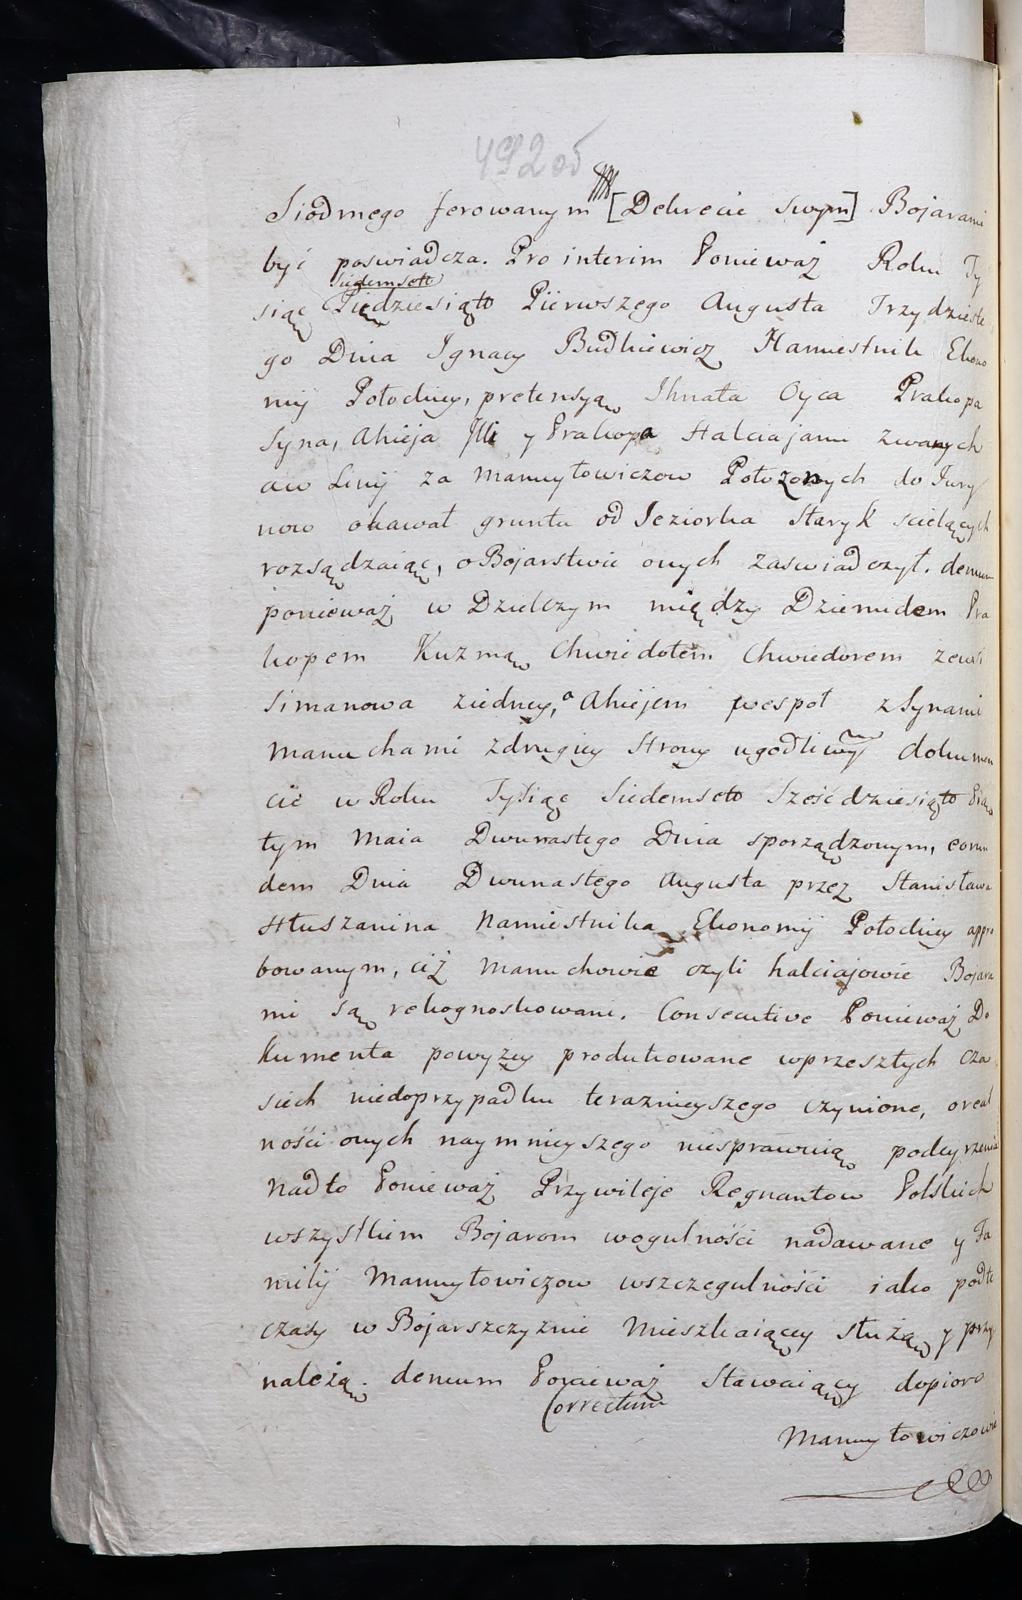 492 об
Siodmego ferowanym [Dekrecie swym] Bojarami
być poswiadcza. Pro interim Ponieważ Roku Ty
siedemset
siąc Piędziesiąt Pierwszego Augusta Trzydzieste
go Dnia Ignacy Budkiewicz Namiestnik Ekono
mij Połockiey, pretensyą Ihnata Oyca Prakopa
Syna, Ahieja y Prakopa Halciajami zwanych
aw Linij za Manuyłowiczow Położonych do Jury
now okawał gruntu od Jeziorka Staryk scielących
rozsądzaiąc, o Bojarstwie onych zaswiadczył. demum
ponieważ w Dzielczym między Dziemidem Pra
kopem Kuzmą Chwiedotem Chwiedorem zewsi
Simanowa ziedney, a Ahiejem wespoł z Synami
Manuchami zdrugiey Strony ugodliwym dokumen
cie w Roku Tysiąc Siedemset Sześćdziesiąt Pią
tym Maia Dwunastego Dnia sporządzonym, eorun
dem Dnia Dwunastego Augusta przez Stanisława
Hłuszanina Namiestnika Ekonomij Połockiey appro
bowanym, ciż Manuchowie czyli halciajowie Bojara
mi są rekognoskowani. Consecutive Ponieważ Do
kumenta powyżey produkowane wprzeszłych cza
siech niedoprzypadku teraznieyszego czynione, oreal
ności onych naymnieyszego niesprawuią podeyrzenia
Nadto Ponieważ Przywileje Regnantow Polskich
wszystkim Bojarom wogulności nadawane y Fa
milij Manuyłowiczow wszczegulności iako podte
czasy w Bojarszczyznie Mieszkaiącey służą y przy
należą. demum Ponieważ Stawaiący dopioro
Correctum
Manuyłowiczowie